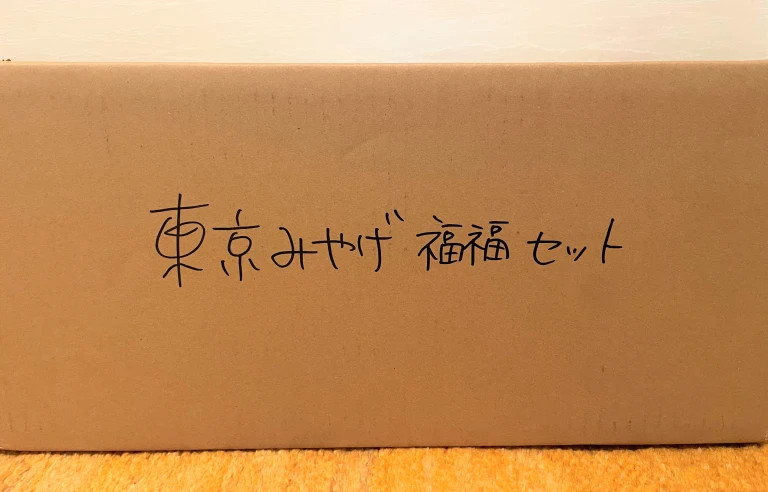 東京みやげ 福福セット